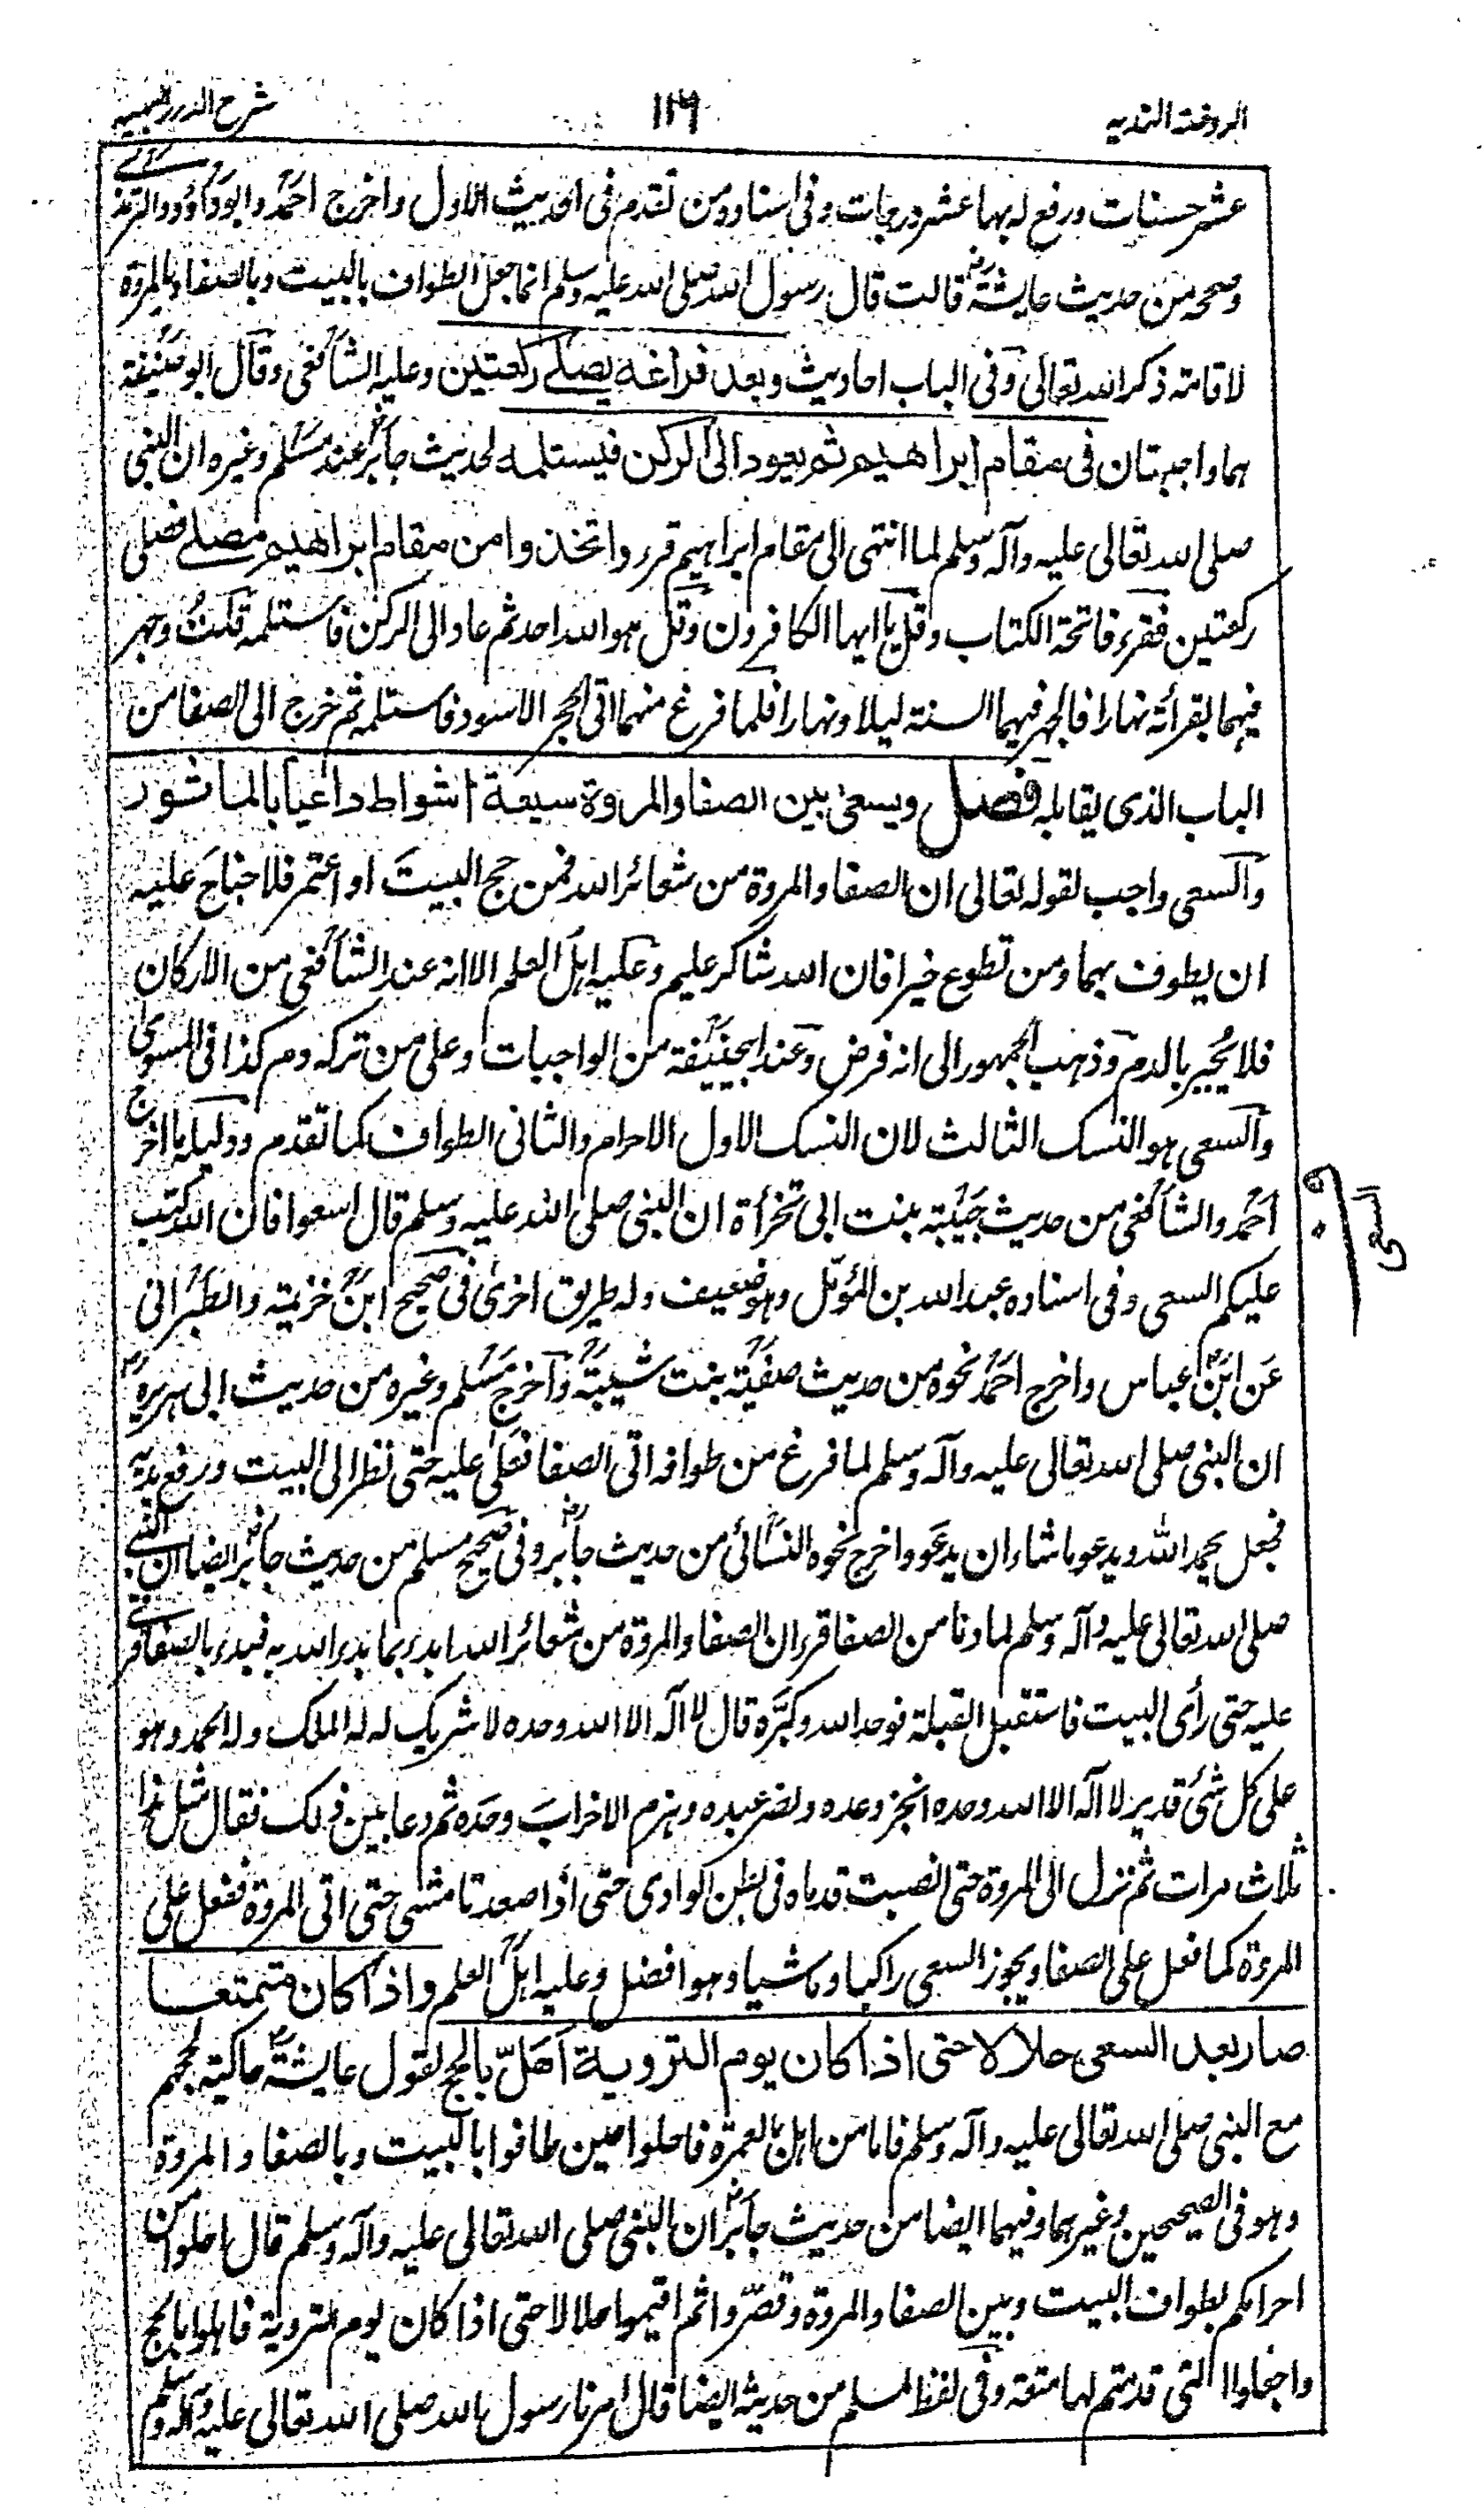 الروضة الندية ١١٦ شرح الدرر البهية
عشر حسنات ورفع له بها عشر درجات وفى اسناده من تقدم فى الحديث الاول واخرج احمد وابوداؤد والترمذى
وصححه من حديث عايشة قالت قال رسول الله صلى الله عليه وسلم انما جعل الطواف بالبيت وبالصفا والمروة
لاقامة ذكر الله تعالى وفى الباب احاديث وبعد فراغه يصلے ركعتين وعليه الشافعى وقال ابوحنيفة
هما واجبتان فى مقام ابراهيم ثم يعود الى الركن فيستلمه لحديث جابر عند مسلم وغيره ان النبى
صلى الله تعالى عليه وآله وسلم لما انتهى الى مقام ابراهيم قرء واتخذوا من مقام ابراهيم مصلے فصلى
ركعتين فقرء فاتحة الكتاب وقل يا ايها الكافرون وقل هو الله احد ثم عاد الى الركن فاستلمه قلت وجهر
فيهما بقرأته نهارا فالجهر فيهما السنة ليلا ونهارا فلما فرغ منهما اتى الحجر الاسود فاستلمه ثم خرج الى الصفا من
الباب الذى يقابله فصل ويسعى بين الصفا والمروة سبعة اشواط داعيا بالماثور
والسعى واجب لقوله تعالى ان الصفا والمروة من شعائر الله فمن حج البيت او اعتمر فلا جناح عليه
ان يطوف بهما ومن تطوع خيرا فان الله شاكر عليم وعليه اهل العلم الا انه عند الشافعى من الاركان
فلا يجبر بالدم وذهب الجمهور الى انه فرض وعند ابحنيفة من الواجبات وعلى من تركه دم كذا فى المسوى
والسعى هو النسك الثالث لان النسك الاول الاحرام والثانى الطواف كما تقدم ودليله ما اخرج
احمد والشافعى من حديث حبيبة بنت ابى تخرأة ان النبى صلى الله عليه وسلم قال اسعوا فان الله كتب
عليكم السعى وفى اسناده عبد الله بن المؤمل وهو ضعيف وله طريق اخرى فى صحيح ابن خزيمة والطبرانى
عن ابن عباس واخرج احمد نحوه من حديث صفية بنت شيبة واخرج مسلم وغيره من حديث ابى هريرة
ان النبى صلى الله تعالى عليه وآله وسلم لما فرغ من طوافه اتى الصفا فعلى عليه حتى نظر الى البيت ورفع يديه
فجعل يحمد الله ويدعو ما شاء ان يدعو واخرج نحوه النسائى من حديث جابر وفى صحيح مسلم من حديث جابر ايضا ان النبے
صلى الله تعالى عليه وآله وسلم لما دنا من الصفا قرء ان الصفا والمروة من شعائر الله ابدء بما بدء الله به فبدء بالصفا فرقى
عليه حتى رأى البيت فاستقبل القبلة فوحد الله وكبره قال لا اله الا الله وحده لا شريك له له الملك وله الحمد وهو
على كل شئ قدير لا اله الا الله وحده انجز وعده ونصر عبده وهزم الاحزاب وحده ثم دعا بين ذلك فقال مثل هذا
ثلاث مرات ثم نزل الى المروة حتى انصبت قدماه فى بطن الوادى حتى اذا صعدتا مشى حتى اتى المروة ففعل على
المروة كما فعل على الصفا ويجوز السعى راكبا وماشيا وهو افضل وعليه اهل العلم واذا كان متمتعا
صار بعد السعى حلالا حتى اذا كان يوم التروية اهل بالحج لقول عايشة حاكية لحجهم
مع النبى صلى الله تعالى عليه وآله وسلم فاما من اهل بالعمرة فاحلوا حين طافوا بالبيت وبالصفا والمروة
وهو فى الصحيحين وغيرهما وفيهما ايضا من حديث جابر ان النبى صلى الله تعالى عليه وآله وسلم قال احلوا من
احرامكم بطواف البيت وبين الصفا والمروة وقصروا ثم اقيموا حلالا حتى اذا كان يوم التروية فاهلوا بالحج
واجعلوا التى قدمتم لها متعة وفى لفظ لمسلم من حديثه ايضا قال امرنا رسول الله صلى الله تعالى عليه وآله وسلم
ف
السعى